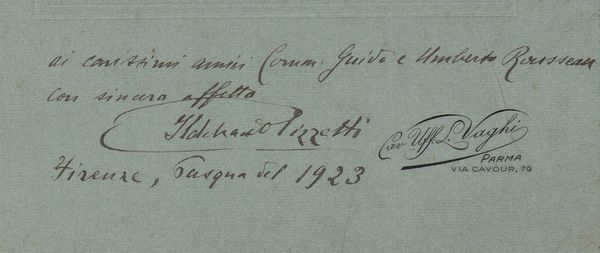 ai carissimi amici Comm. Guido e Umberto Rousseau
con sincero affetto
Ildebrando Pizzetti
Firenze, Pasqua del 1923
Cav. Uff. L. Vaghi
PARMA
VIA CAVOUR, 79